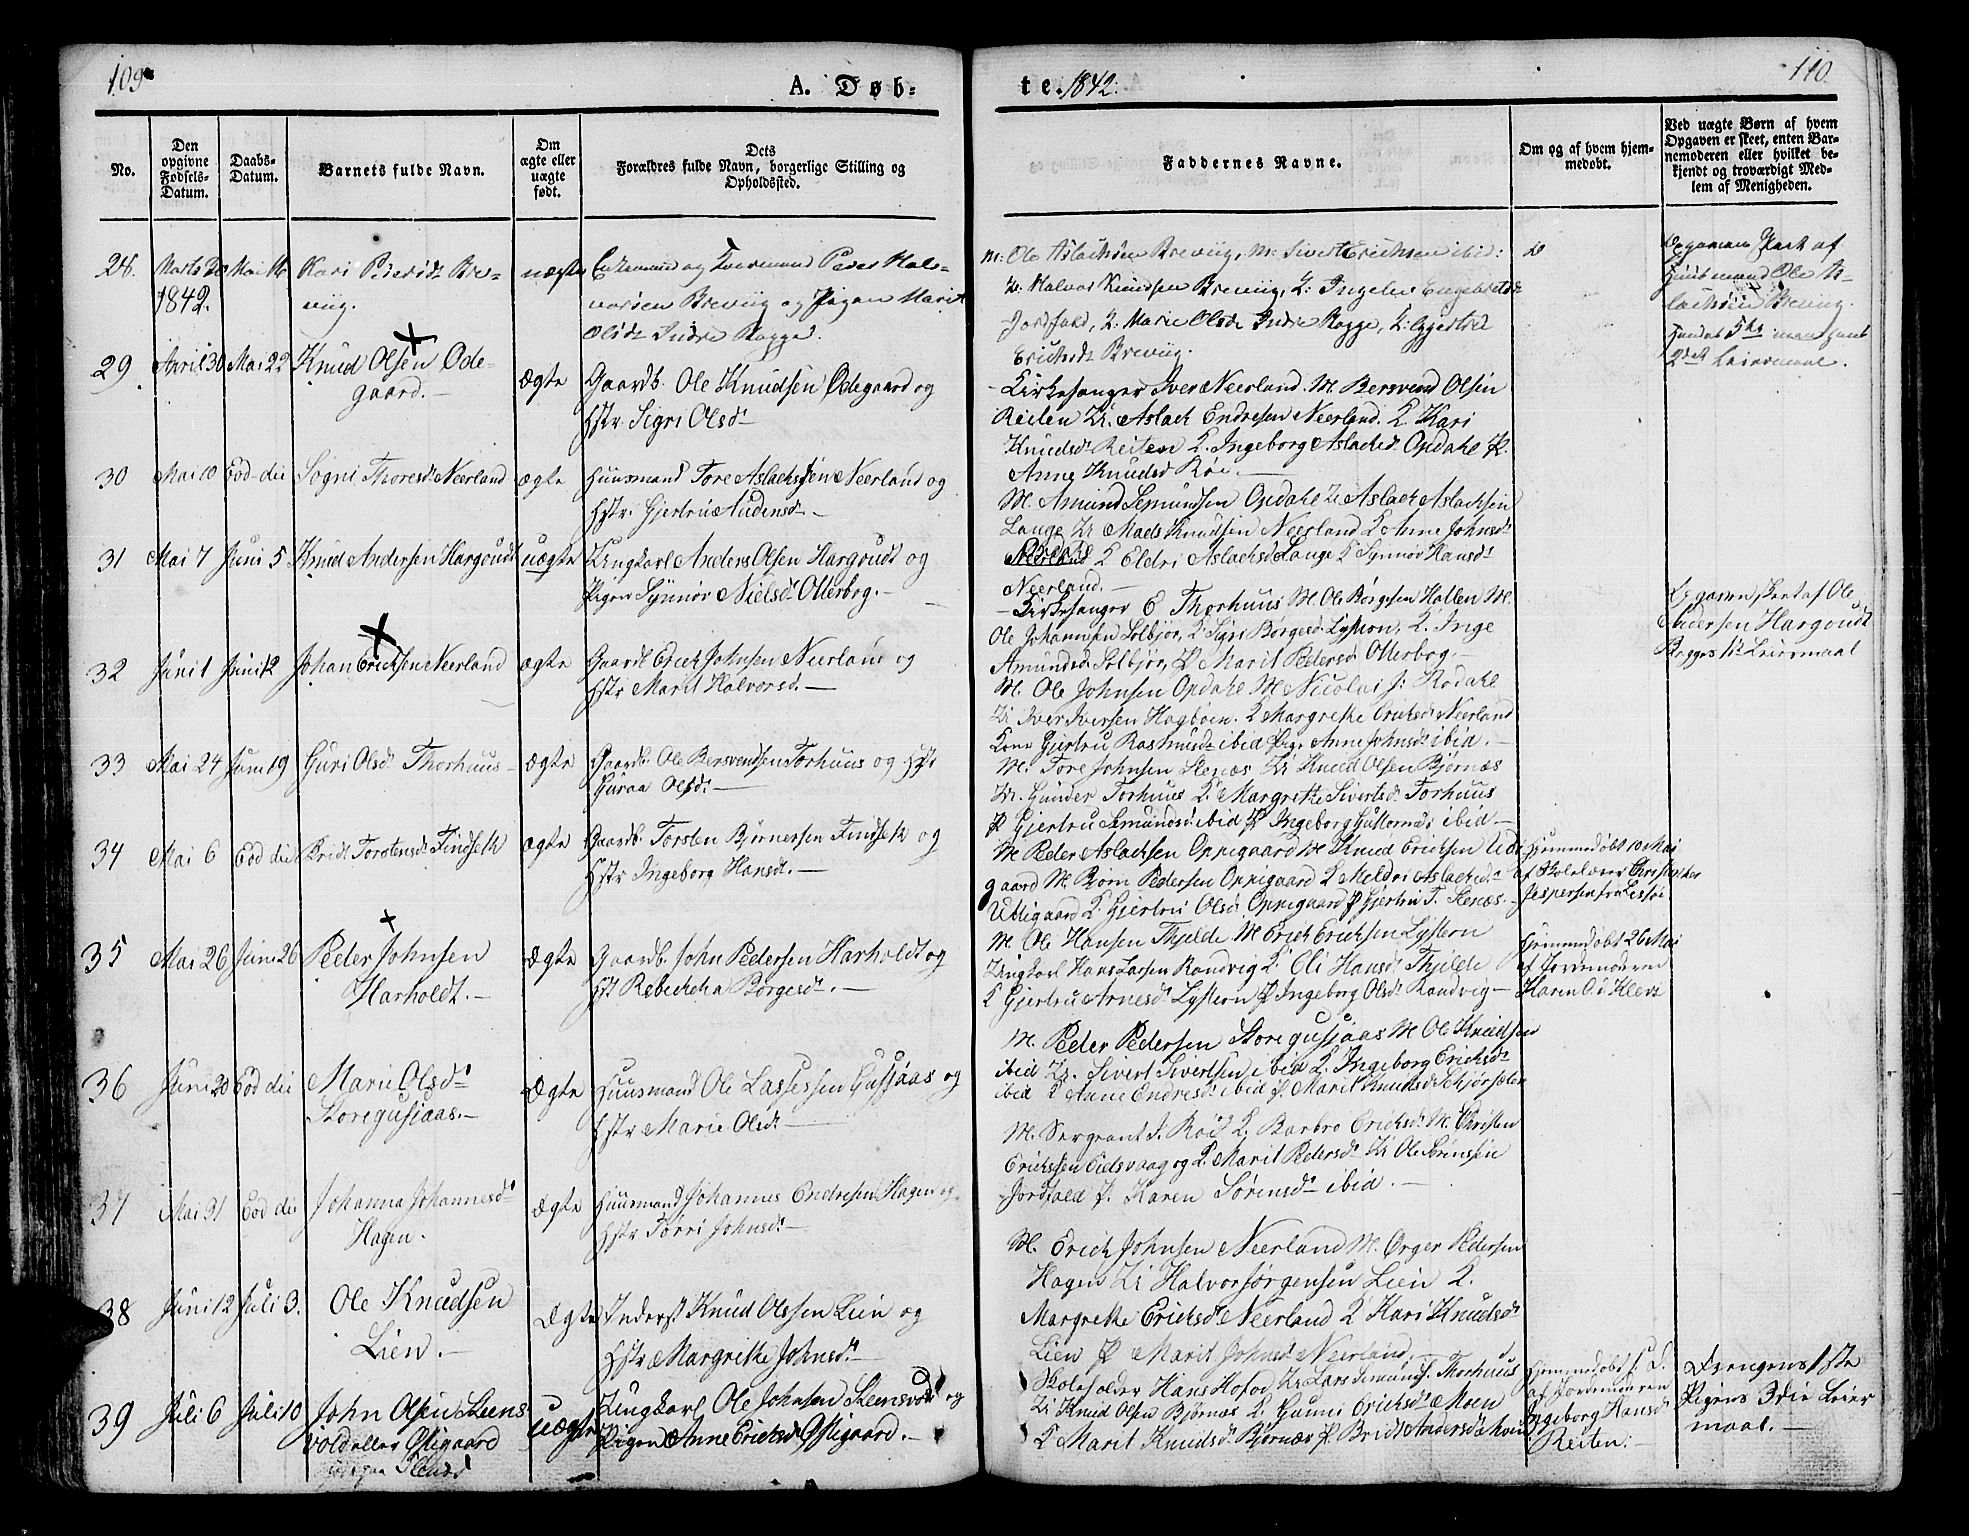 109
A. Døb-
te. 1842.
110.
No.
Den opgivne Fødsels-Datum.
Daabs-Datum.
Barnets fulde Navn.
Om ægte eller uægte født.
Forældres fulde Navn, borgerlige Stilling og Dets Opholdsted.
Faddernes Navne.
Om og af hvem hjem-
medøbt.
Ved uægte Børn af hvem
Opgaven er skeet, enten Bar-
nemoderen eller hvilket be-
kjendt og troværdigt Med-
lem af Menigheden.
28. Marts 1842. Mai 16 Kari Pedersdr Bre-
viig. uægte Enkemand og Peder Hal-
vorsen Breviig og Pigen Marit
Olsdr Indre Rogge.
M: Ole Aslachsen Breviig, M: Sivert Erichsen ibid:
U: Halvor Knudsen Breviig, K: Ingeleu Engebretsdr
Jordfald, K: Marie Olsdr Indre Rogge, K: Gjertrud
Erichsdr Breviig.
Opgaven skeet af
Huusmand Ole As-
lachsen Breviig.
29 April 30 Mai 22 Knud Olsen Øde-
gaard.
ægte Gaardb. Ole Knudsen Ødegaard og
Hstr Sigri Olsdr
Kirkesanger Iver Neerland. M. Bersvend Olsen
Reiten U. Aslach Endresen Neerland. K. Kari
Knudsdr Reiten K. Ingeborg Aslachsdr Opdahl P.
Anne Knudsd Röe.
30 Mai 10 Eod die Sogni Thoresdr Neerland ægte Huusmand Tore Aslachsen Neerland og
Hstr. Gjertru Audensdr
M. Amund Semundsen Opdahl U. Aslach Aslachsen
Lange U. Mads Knudsen Neerland K Anne Johnsdr
Opdahl K Eldri Aslachsdr Lange K Synnøv Hansdr
Neerland.
31 Mai 7 Juni 5 Knud Andersen Hargoudt uægte Ungkarl Anders Olsen Hargoudt og
Pigen Synnøv Nielsdr Otterbog.
Kirkesanger E Thorhuus M. Ole Børgesen Hallen M.
Ole Johannsen Solbjør, K. Sigri Børgesdr Lysteon, K. Inge
Amundsd. Solbjør, P Marit Pedersdr Otterbog.
Opgaven skeet af Ole
Andersen Hargoudt
Begges 1ste Leiersmaal
32 Juni 1 Juni 12 Johan Erichsen Neerland ægte Gaardb Erich Johnsen Neerland og
Hstr Marit Halvorsd.
M. Ole Johnsen Opdahl M Nicolai J: Rödahl
U Iver Iversen Hagböen. K Margrethe Erichsdr Neerland
Kone Gjertru Rasmusdr ibid Pige Anne Johnsdr ibid.
33 Mai 24 Juni 19 Guri Olsdr Thorhuus ægte Gaardb. Ole Bersvendsen Torhuus og Hstr
Guraa Olsdr
M. Tore Johnsen Stenæs U Knud Olsen Bjørnæs
U. Gunder Torhuus K. Margrethe Sivertsdr Torhuus
P Gjertru Semundsdr ibid P Ingeborg Guttormsd ibid
34 Mai 6 Eod die Brit Torstensdr Findseth ægte Gaardb. Torsten Bjørnersen Findseth og
Hstr Ingeborg Hansdr.
M Peder Aslachsen Oppigaard M Knud Erichsen Utti
gaard M. Bjørn Pedersen Oppigaard K Meldri Aslachsdr
Uttigaard K Gjertru Olsdr Oppigaard P Gjertru T. Stenæs.
Hjemmedøbt 10 Mai
af Skolelærer Christopher
Jespersen fra Lesjøe
35 Mai 26 Juni 26 Peder Johnsen
Harholdt.
ægte Gaardb. John Pedersen Harholdt og
Hst Rebeckcha Børgesdr.
M. Ole Hansen Thjelde M Erich Erichsen Lysteon
Ungkarl Hans Larsen Randvig K. Oli Hansdr Thjelde
K Gjertru Arnesdr Lysteon P Ingeborg Olsdr Randvig
Hjemmedøbt 26 Mai
af Jordemoderen
Karen O.d Klevs
36 Juni 20 Eod die Marie Olsdr
Storegusjaas.
ægte Huusmand Ole Lassessen Gusjaas og
Hstr Marie Olsdr
M. Peder Pedersen Storegusjaas M Ole Knudsen
ibid U. Sivert Sivertsen ibid K. Ingeborg Erichsdr
ibid K Anne Endresdr ibid P. Marit Knudsdr Schjørsæter
37 Mai 31 Eod die Johanna Johannesdr
Hagen.
ægte Huusmand Johannes Endresen Hagen og
Hstr Torri Johnsdr
M. Sergeant J. Röe K. Barbro Erichsdr M. Christen
Erickssen Eidsvaag og K. Marit Pedersdr U Ole Sörensen
Jordfald P. Karen Sörensdr ibid.
38 Juni 12 Juli 3. Ole Knudsen
Lien.
ægte Inderst Knud Olsen Lien og
Hstr Margrethe Johnsdr
M. Erich Johnsen Neerland M. Ørger Pedersen
Hagen U Halvor Jørgensen Lien K.
Margrethe Erichsdr Neerland K Kari Knudsdr
Lien P Marit Johnsdr Neerland
39 Juli 6 Juli 10 John Olsen Steens
vold eller Østigaard
uægte Ungkarl Ole Johnsen Steensvold og
Pigen Anne Erichsdr Østigaard.
Skoleholder Hans Hofoe, U Lars Semunds. Thorhuus
U Knud Olsen Bjørnæs K. Gunni Erichsdr Moen
K Marit Knudsdr Bjørnæs P Brit Andersdr
Hjemmedøbt s. D.
af Jordemoderen
Ingeborg Hansdr
Reiten.
Drengens 1ste
Pigens 3die Leier
maal.